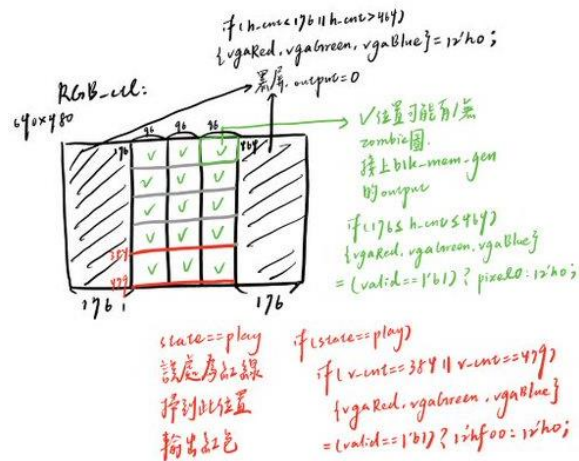 if(h_cnt<176 || h_cnt>464)
{vgaRed, vgaGreen, vgaBlue}=12'h0;
黑屏, output=0
RGB_ctl:
640x480
96 96 96
176
464
✓位置可能有/無
zombie圖.
接上blk_mem_gen
的output
if(176≤h_cnt≤464)
{vgaRed, vgaGreen, vgaBlue}
=(valid==1'b1)? pixel0:12'h0;
384
479
176
176
state==play
該處為紅線
掃到此位置
輸出紅色
if(state==play)
if(v_cnt==384 || v_cnt==479)
{vgaRed, vgaGreen, vgaBlue}
=(valid==1'b1)? 12'hf00:12'h0;